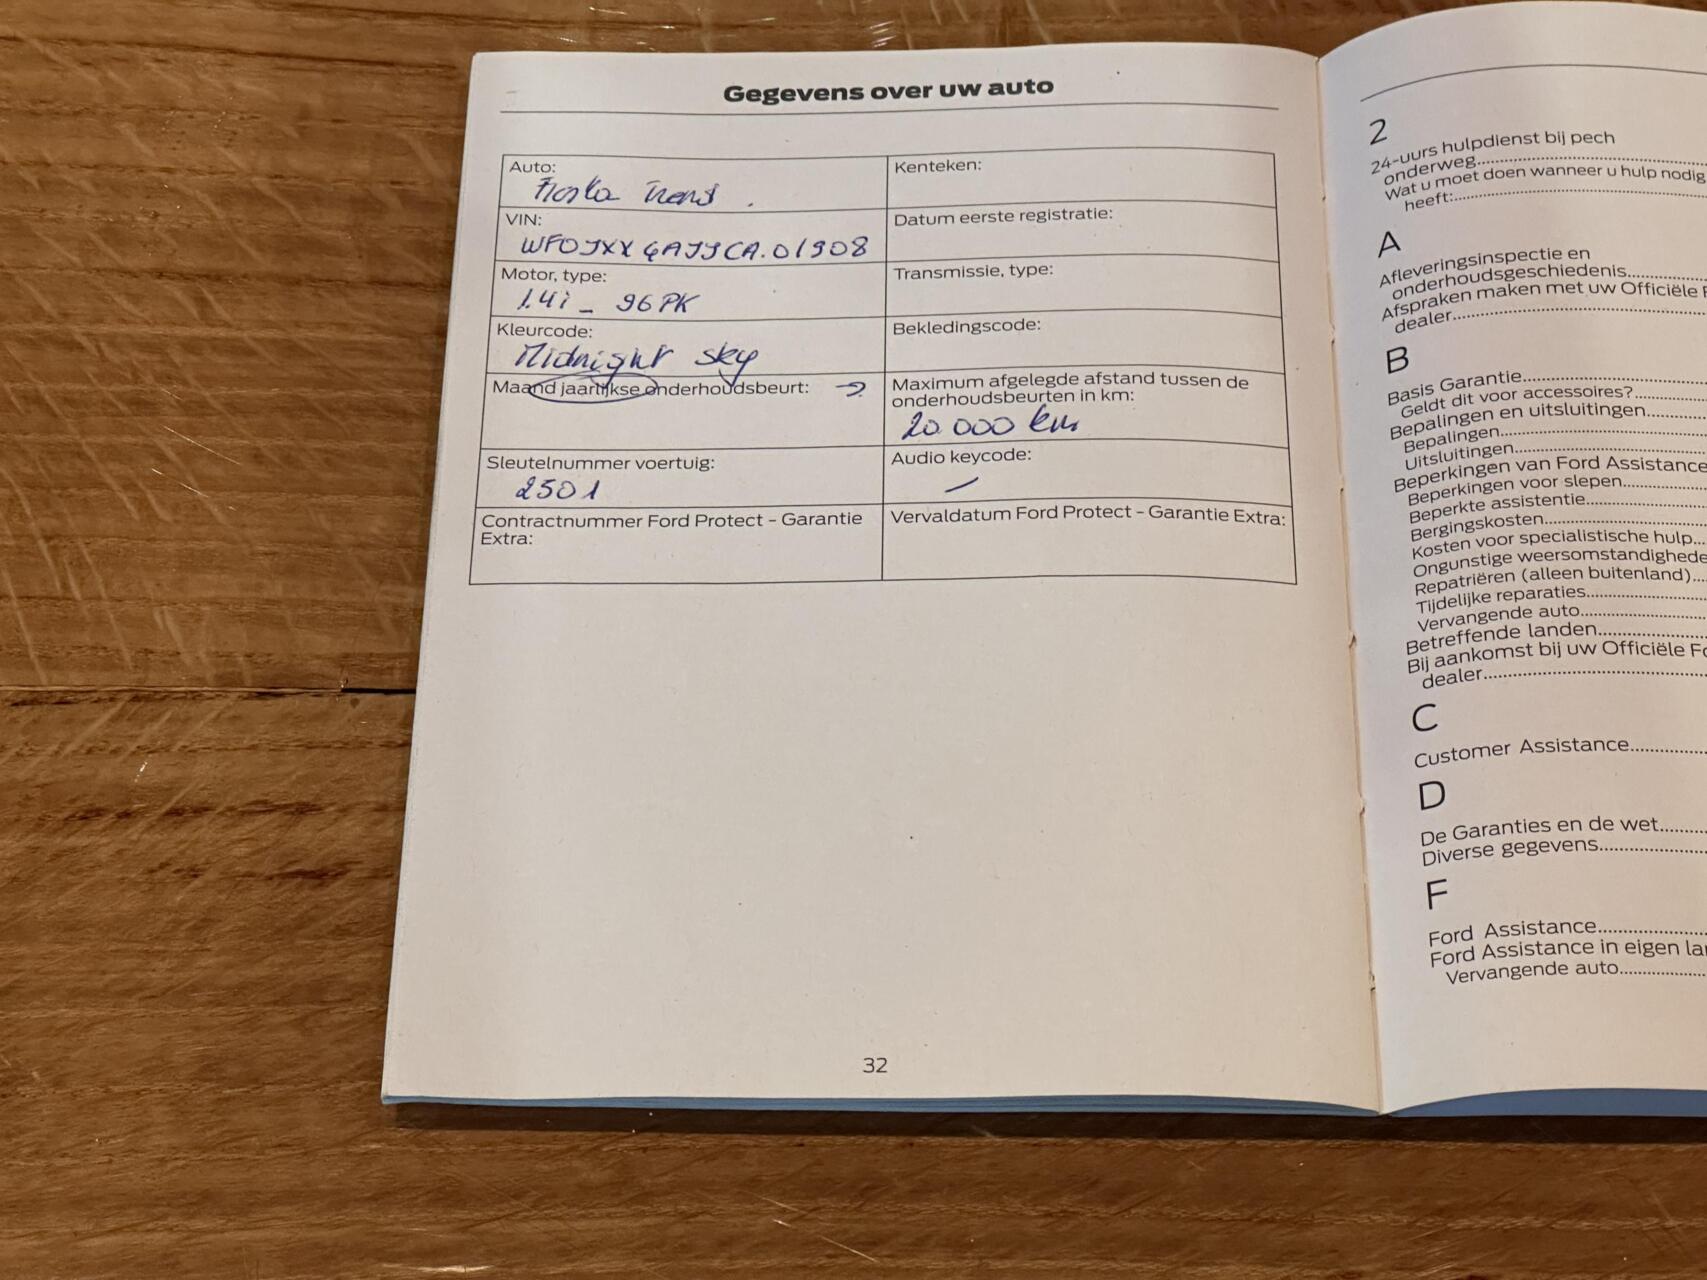 Gegevens over uw auto
Auto:
Fiesta Trend.
VIN:
WFOJXXGAJJCA.01908
Motor, type:
1.4i - 96 PK
Kleurcode:
Midnight sky
Maand jaarlijkse onderhoudsbeurt: →
Sleutelnummer voertuig:
2501
Contractnummer Ford Protect - Garantie
Extra:
Kenteken:
Datum eerste registratie:
Transmissie, type:
Bekledingscode:
Maximum afgelegde afstand tussen de
onderhoudsbeurten in km:
20.000 km
Audio keycode:
—
Vervaldatum Ford Protect - Garantie Extra:
32
2
24-uurs hulpdienst bij pech
onderweg
Wat u moet doen wanneer u hulp nodig
heeft:
A
Afleveringsinspectie en
onderhoudsgeschiedenis
Afspraken maken met uw Officiële F
dealer
B
Basis Garantie
Geldt dit voor accessoires?
Bepalingen en uitsluitingen
Bepalingen
Uitsluitingen
Beperkingen van Ford Assistance
Beperkingen voor slepen
Beperkte assistentie
Bergingskosten
Kosten voor specialistische hulp
Ongunstige weersomstandighede
Repatriëren (alleen buitenland)
Tijdelijke reparaties
Vervangende auto
Betreffende landen
Bij aankomst bij uw Officiële Fo
dealer
C
Customer Assistance
D
De Garanties en de wet
Diverse gegevens
F
Ford Assistance
Ford Assistance in eigen la
Vervangende auto